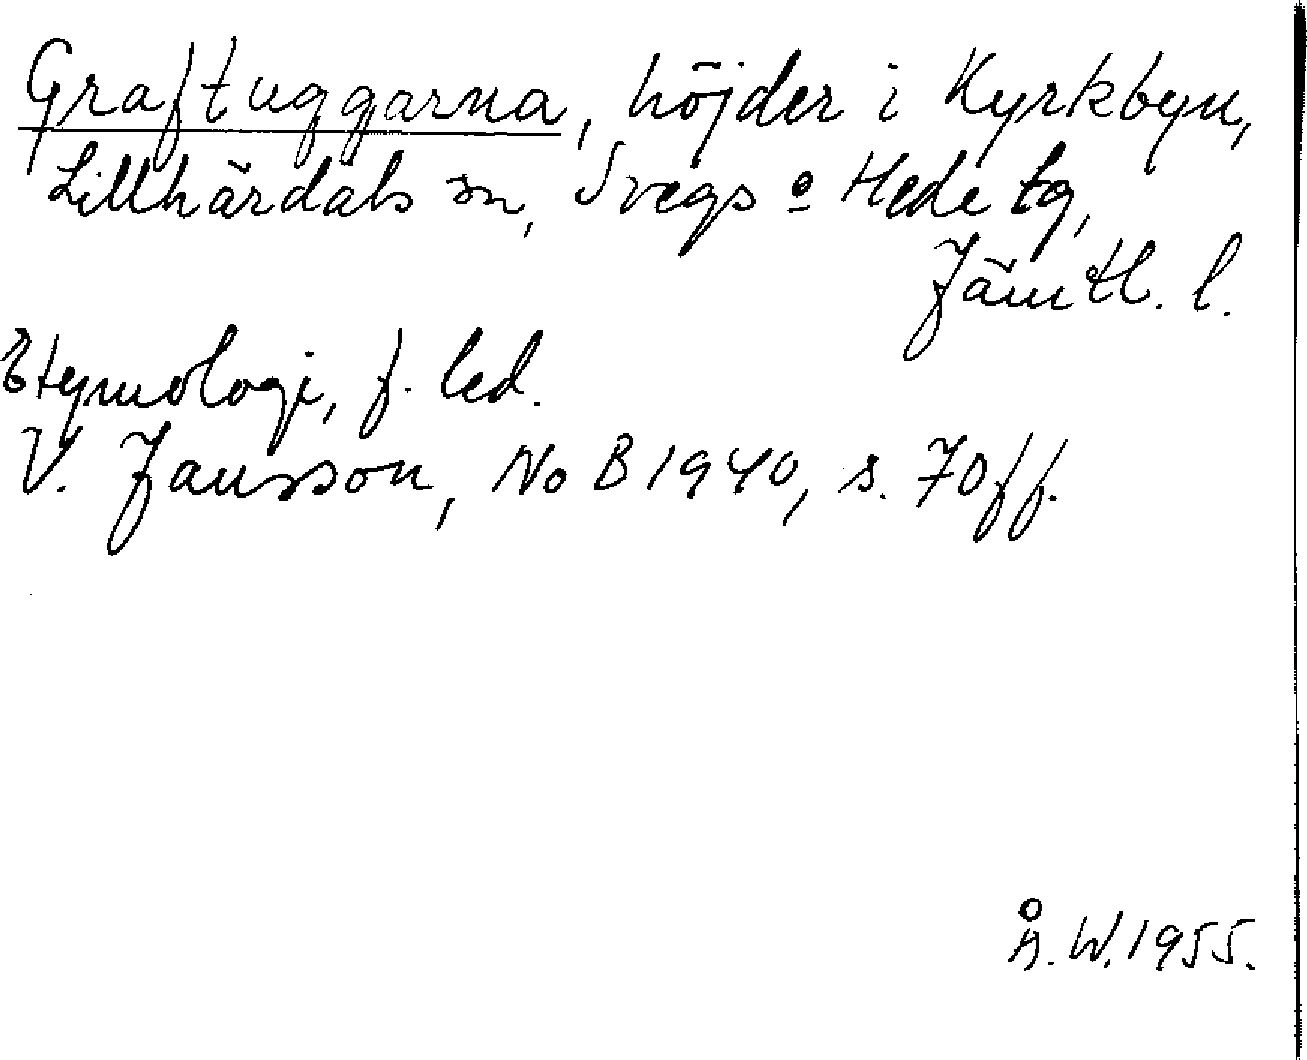 Graftuggarna, höjder i Kyrkbyn,
Lillhärdals sn, Svegs o Hede tg,
Jämtl. l.
Etymologi, f. led.
V. Jansson, NoB 1940, s. 70 ff.
Å. W. 1955.